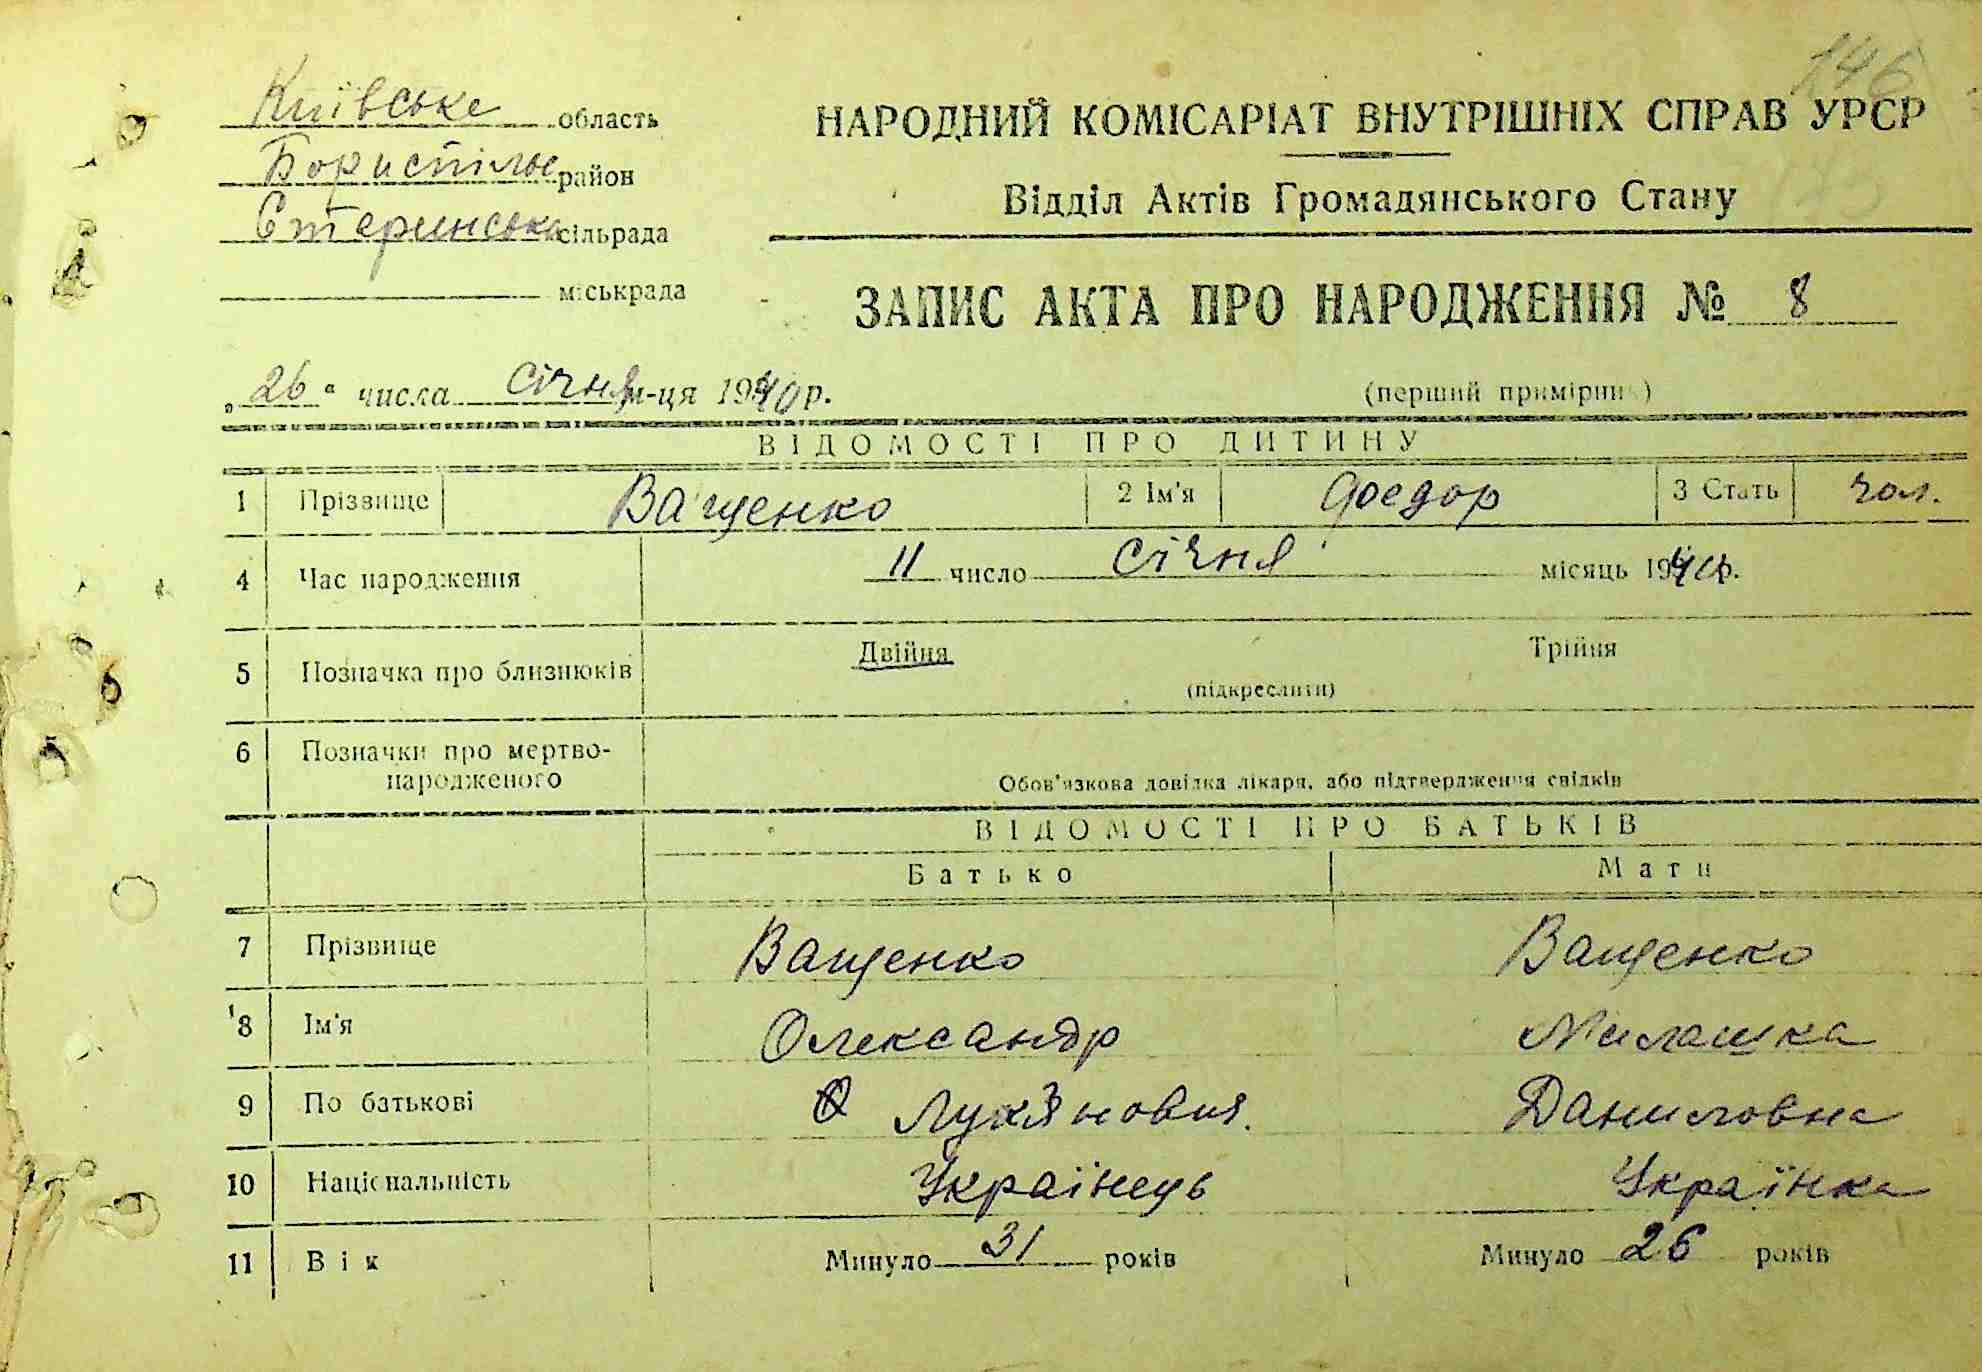 146
Київське область
НАРОДНИЙ КОМІСАРІАТ ВНУТРІШНІХ СПРАВ УРСР
Бориспільс район
Відділ Актів Громадянського Стану
сільрада
міськрада
ЗАПИС АКТА ПРО НАРОДЖЕННЯ № 8
„26“ числа січня м-ця 1940 р.
(перший примірник)
ВІДОМОСТІ ПРО ДИТИНУ
1 Прізвище Ващенко 2 Ім'я Федор 3 Стать чол.
4 Час народження 11 число січня місяць 1940 р.
5 Позначка про близнюків Двійня Трійня
(підкреслити)
6 Позначки про мертво-
народженого
Обов'язкова довідка лікаря, або підтвердження свідків
ВІДОМОСТІ ПРО БАТЬКІВ
Батько Мати
7 Прізвище Ващенко Ващенко
8 Ім'я Олександр Милашка
9 По батькові Лук'янович Даниловна
10 Національність Українець Українка
11 Вік Минуло 31 років Минуло 26 років